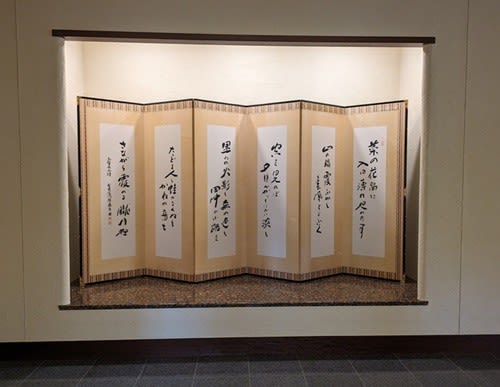 菜の花畠に
入日薄れ見わたす
山の端霞ふかし
春風そよふく
空を見れば
夕月かかりてにほひ淡し
里わの火影も森の色も
田中の小路を
たどる人も蛙のなくねも
かねの音も
さながら霞める朧月夜